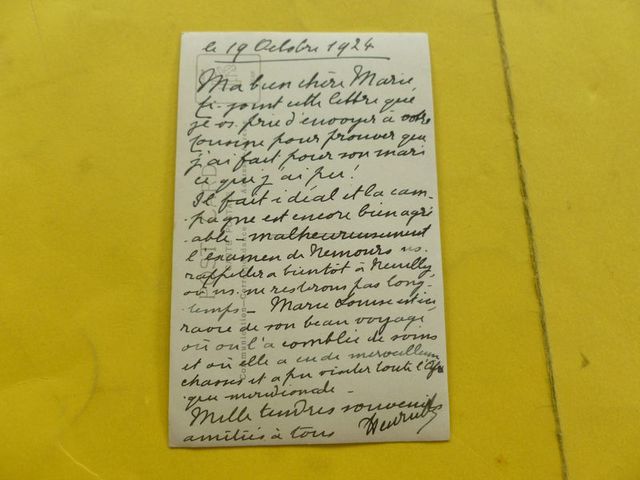 le 19 Octobre 1924
Ma bien chère Marie
Ci-joint cette lettre que
je vs. prie d'envoyer à votre
cousine pour prouver que
j'ai fait pour son mari
ce que j'ai pu!
Il fait idéal et la cam-
pagne est encore bien agré
able - malheureusement
l'examen de Nemours ns.
rappellera bientôt à Neuilly,
où ns. ne resterons pas long-
temps - Marie Louise est en
ravie de son beau voyage
où on l'a comblée de soins
et où elle a eu de merveilleuses
chasses et a pu visiter toute l'Afri
que méridionale -
Mille tendres souvenirs
amitiés à tous